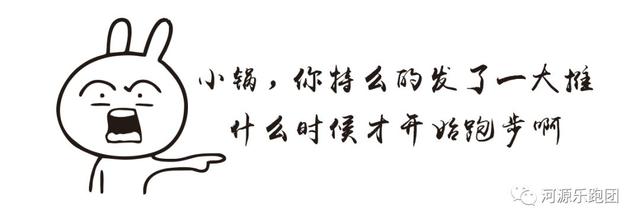 小锅，你持么的发了一大推
什么时候才开始跑步啊
河源乐跑团